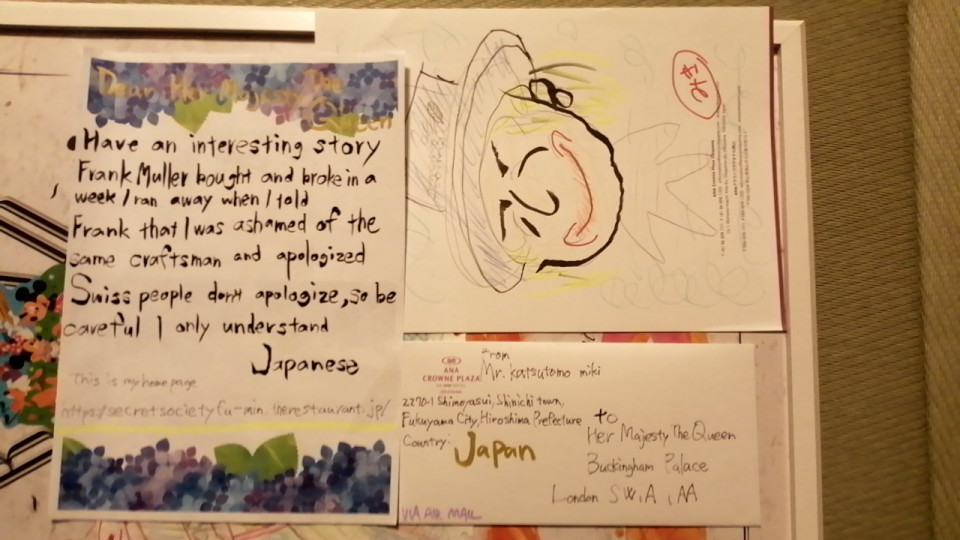 Dear Her Majesty The
Queen
Have an interesting story
Frank Muller bought and broke in a
week / ran away when / told
Frank that I was ashamed of the
same craftsman and apologized
Swiss people don't apologize, so be
careful I only understand
Japanese
This is my home page
https://secretsocietyfu-min.therestaurant.jp/
ANA
CROWNE PLAZA
From
Mr. katsutomo miki
2270-1 Shimoyasui, Shinichi town,
Fukuyama City, Hiroshima Prefecture
Country:
Japan
to
Her Majesty The Queen
Buckingham Palace
London SW1A 1AA
VIA AIR MAIL